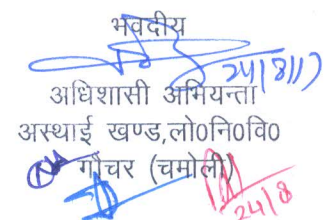 भवदीय
24/8/17
अधिशासी अभियन्ता
अस्थाई खण्ड,लो०नि०वि०
गौचर (चमोली)
24/8